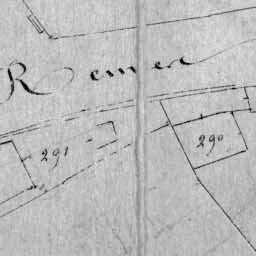 Remer
291
290